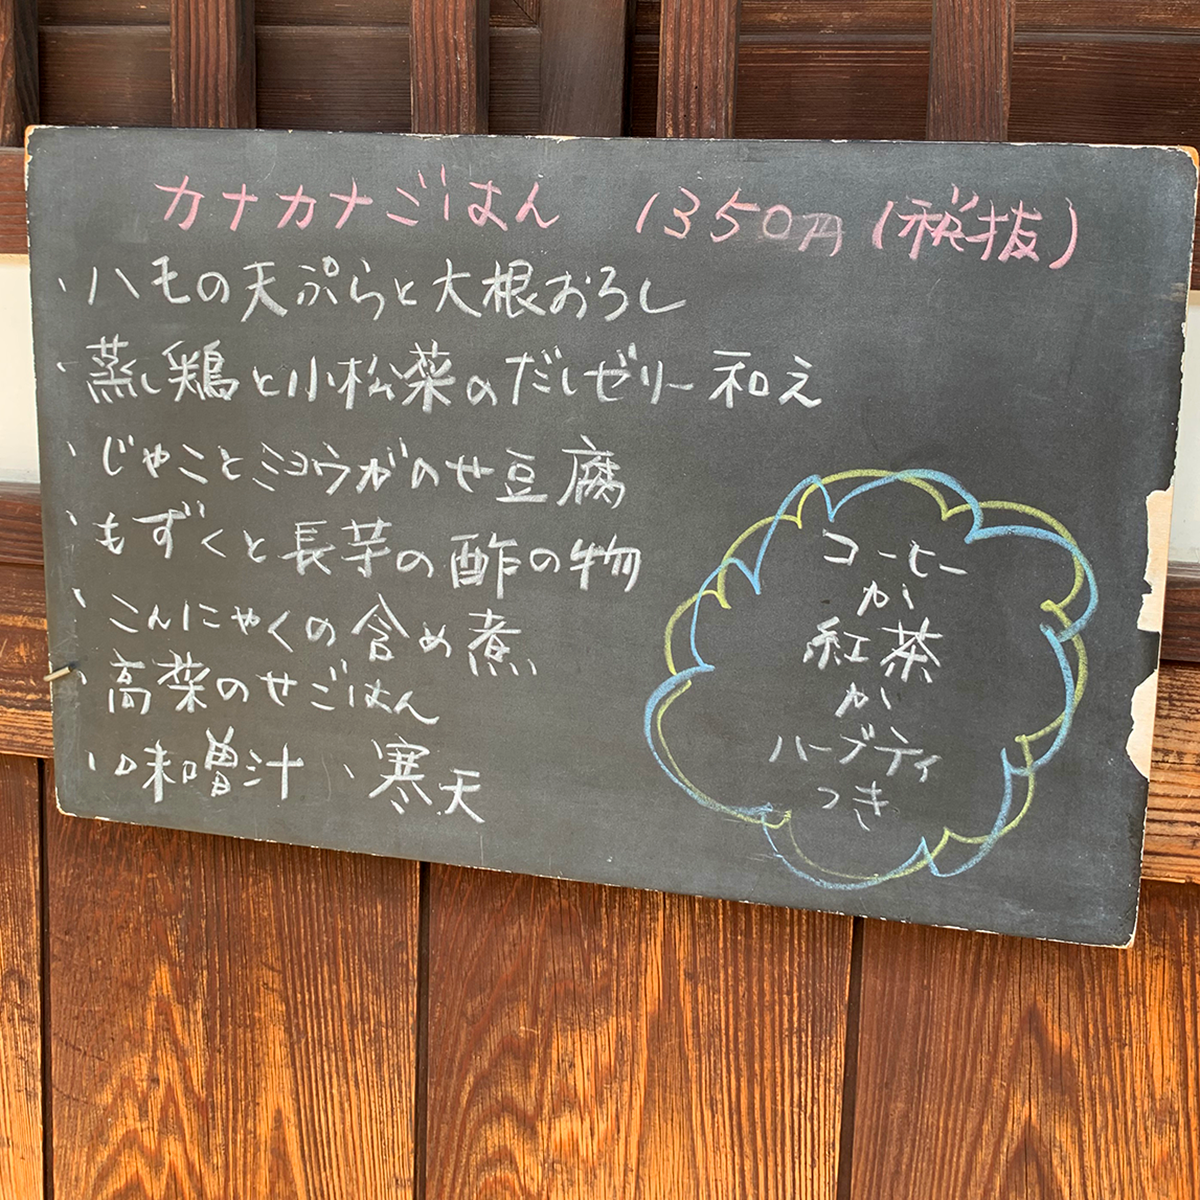 カナカナごはん 1350円(税抜)
、ハモの天ぷらと大根おろし
、蒸し鶏と小松菜のだしゼリー和え
、じゃことミョウガのせ豆腐
、もずくと長芋の酢の物
、こんにゃくの含め煮
、高菜のせごはん
、味噌汁 、寒天
コーヒー
か
紅茶
か
ハーブティ
つき